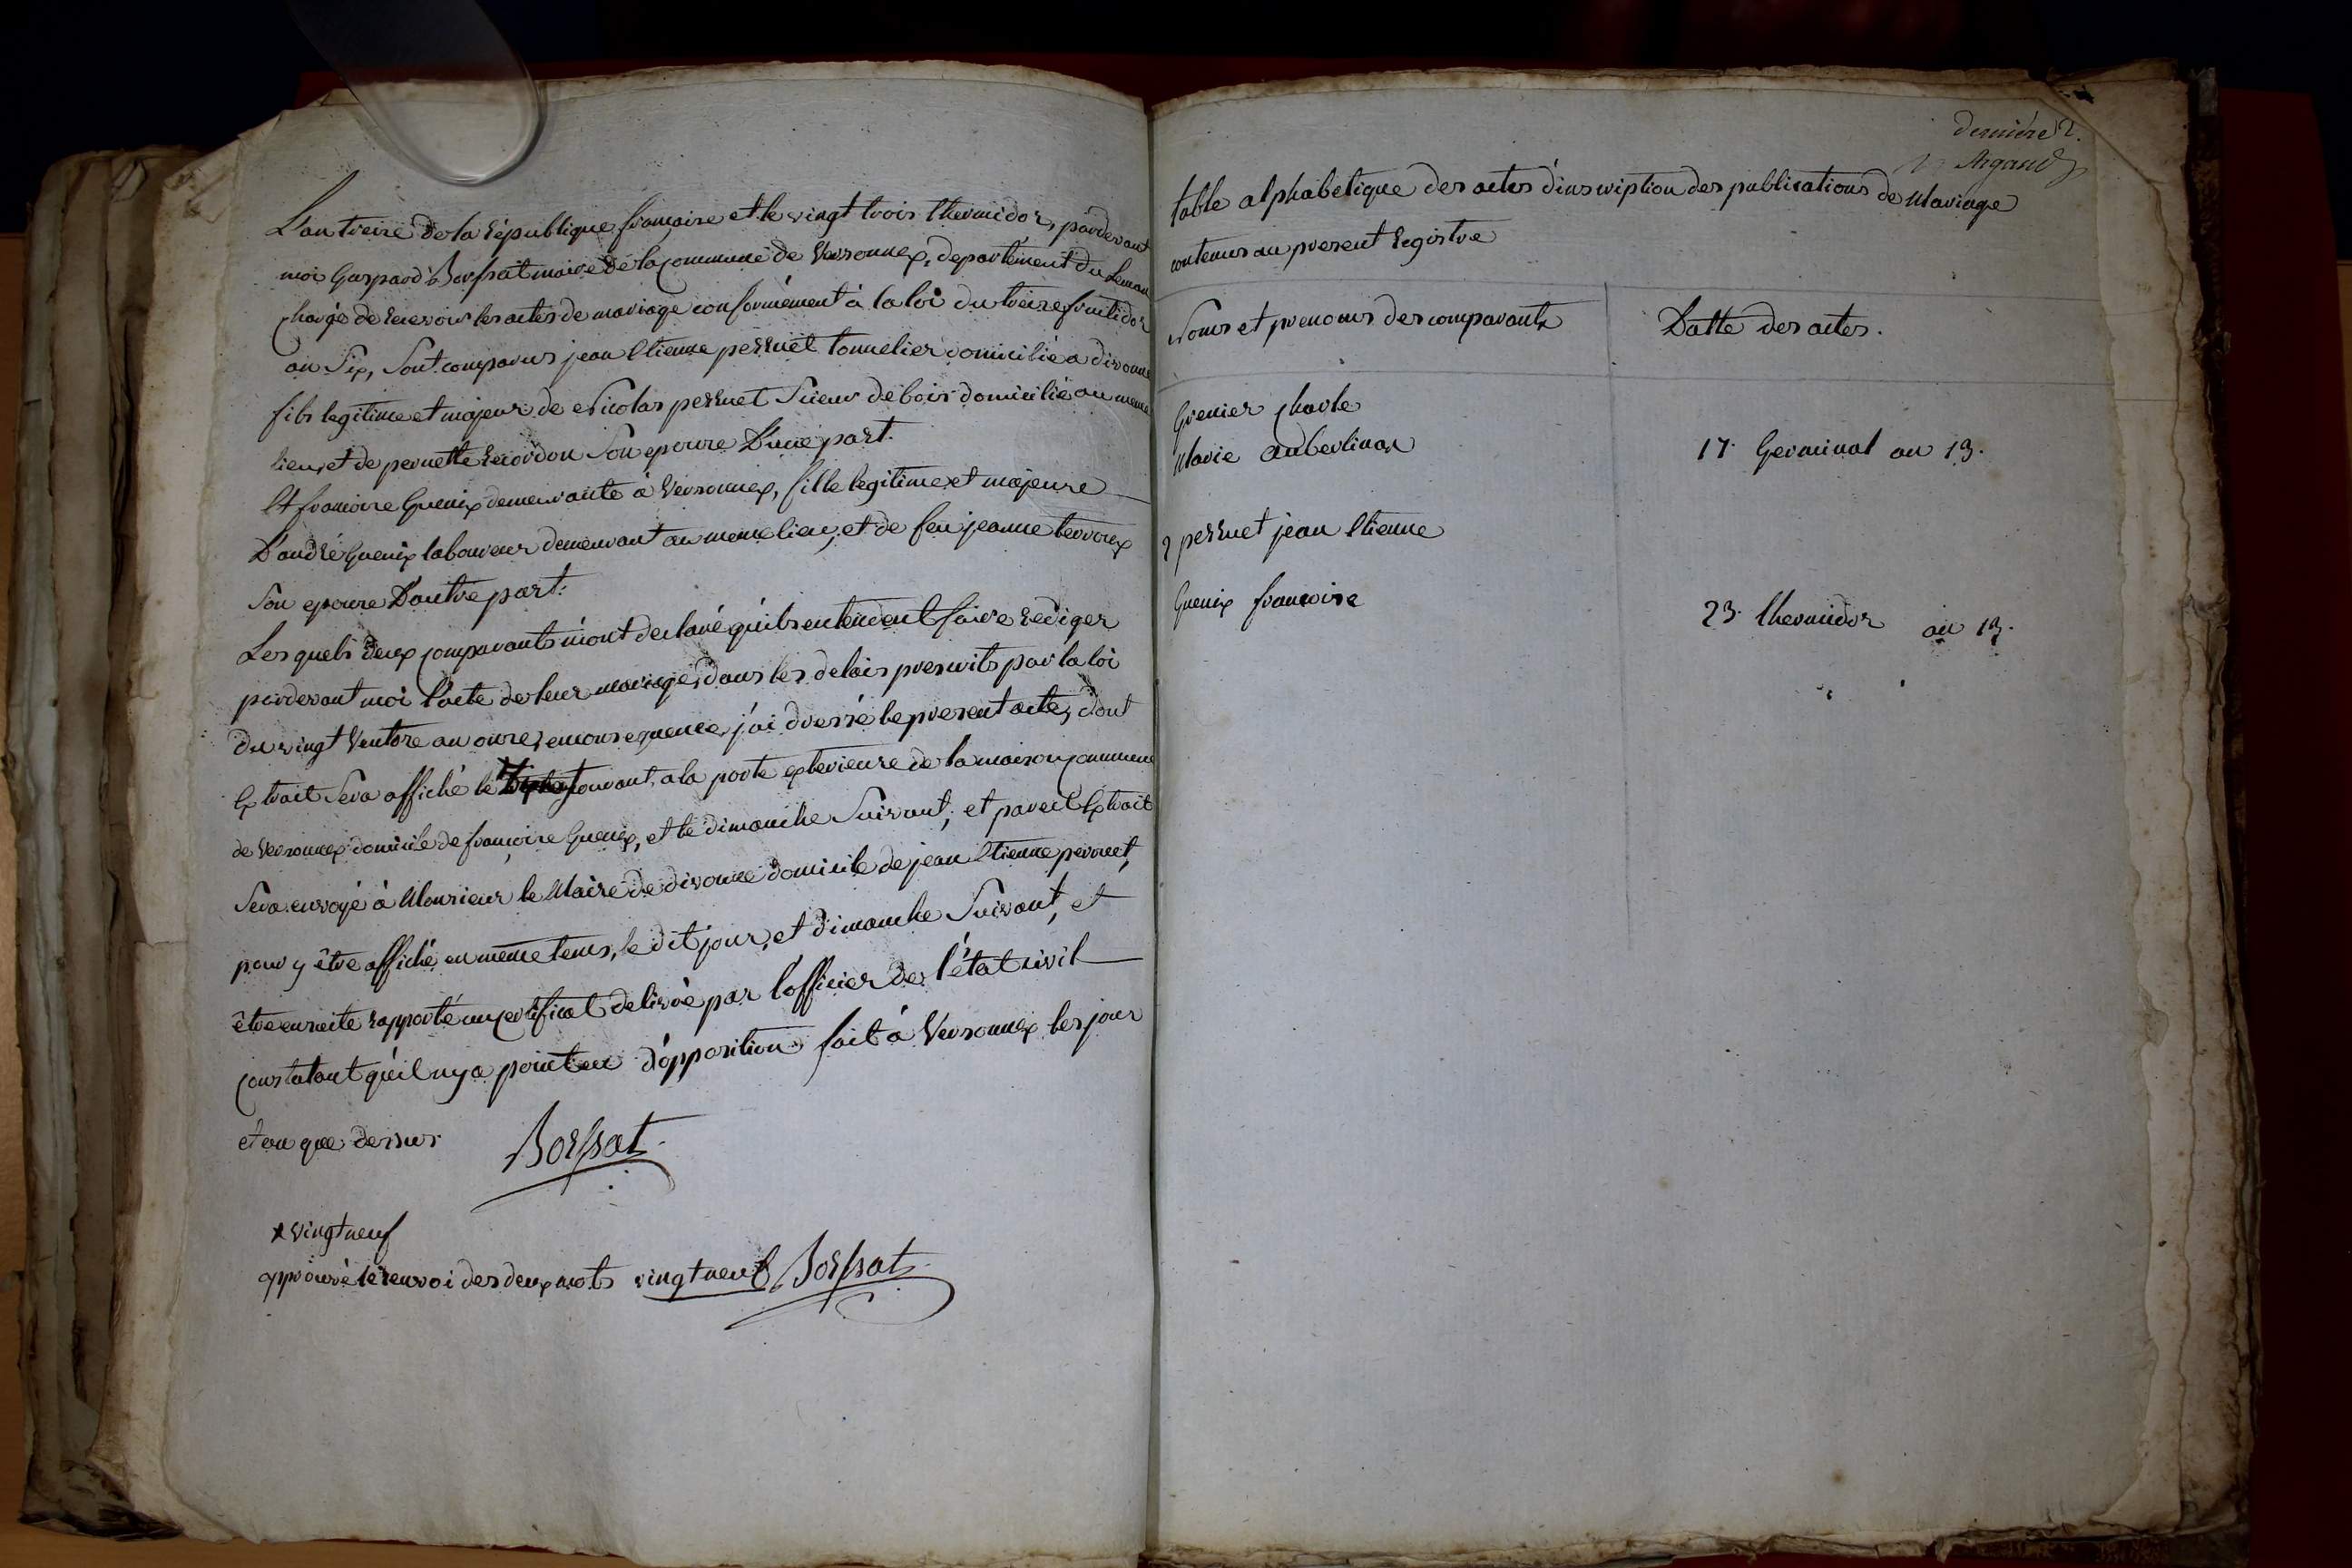 L'an treize de la République françoise et le vingt trois thermidor, pardevant
moi Gaspard Borssat maire de la commune de Versonnex, departement du Leman
chargé de recevoir les actes de mariage conformément à la loi du treize fructidor
an Six, Sont comparus jean Etienne perruet tonnelier domicilié a divonne
fils legitime et majeur de Nicolas perruet Sieur de bois domicilié au meme
lieu, et de pernette recordon Son epouse D'une part.
Et francoise Guenix demeurante à Versonnex, fille legitime et majeure
D'andré Guenix laboureur demeurant au meme lieu, et de feu jeanne
Son epouse D'autre part:
Lesquels deux comparants m'ont declaré qu'ils entendent faire rediger
pardevant moi l'acte de leur mariage, dans les delais prescrits par la loi
du vingt Ventose an onze, en consequence, j'ai dressé le present acte, dont
Extrait Sera affiché le courant, a la porte exterieure de la maison commune
de Versonnex domicile de françoise Guenix, et le dimanche Suivant; et pareil Extrait
Sera envoyé à Monsieur le Maire de divonne domicile de jean Etienne perruet,
pour y être affiché en meme tems, le dit jour, et dimanche Suivant, et
être ensuite rapporté un certificat delivré par l'officier de l'état civil
constatant qu'il n'y a point eu d'opposition fait à Versonnex les jour
et an que dessus
Borssat
x vingt neuf
approuvé le renvoi des deux mots vingt neuf Borssat
derniere 2.
Argand
table alphabetique des actes d'inscription des publications de Mariage
contenus au present Registre
Noms et prenoms des comparants Datte des actes.
Grenier charle
Marie 17. Germinal an 13.
perruet jean Etienne
Guenix francoise
23. thermidor an 13.